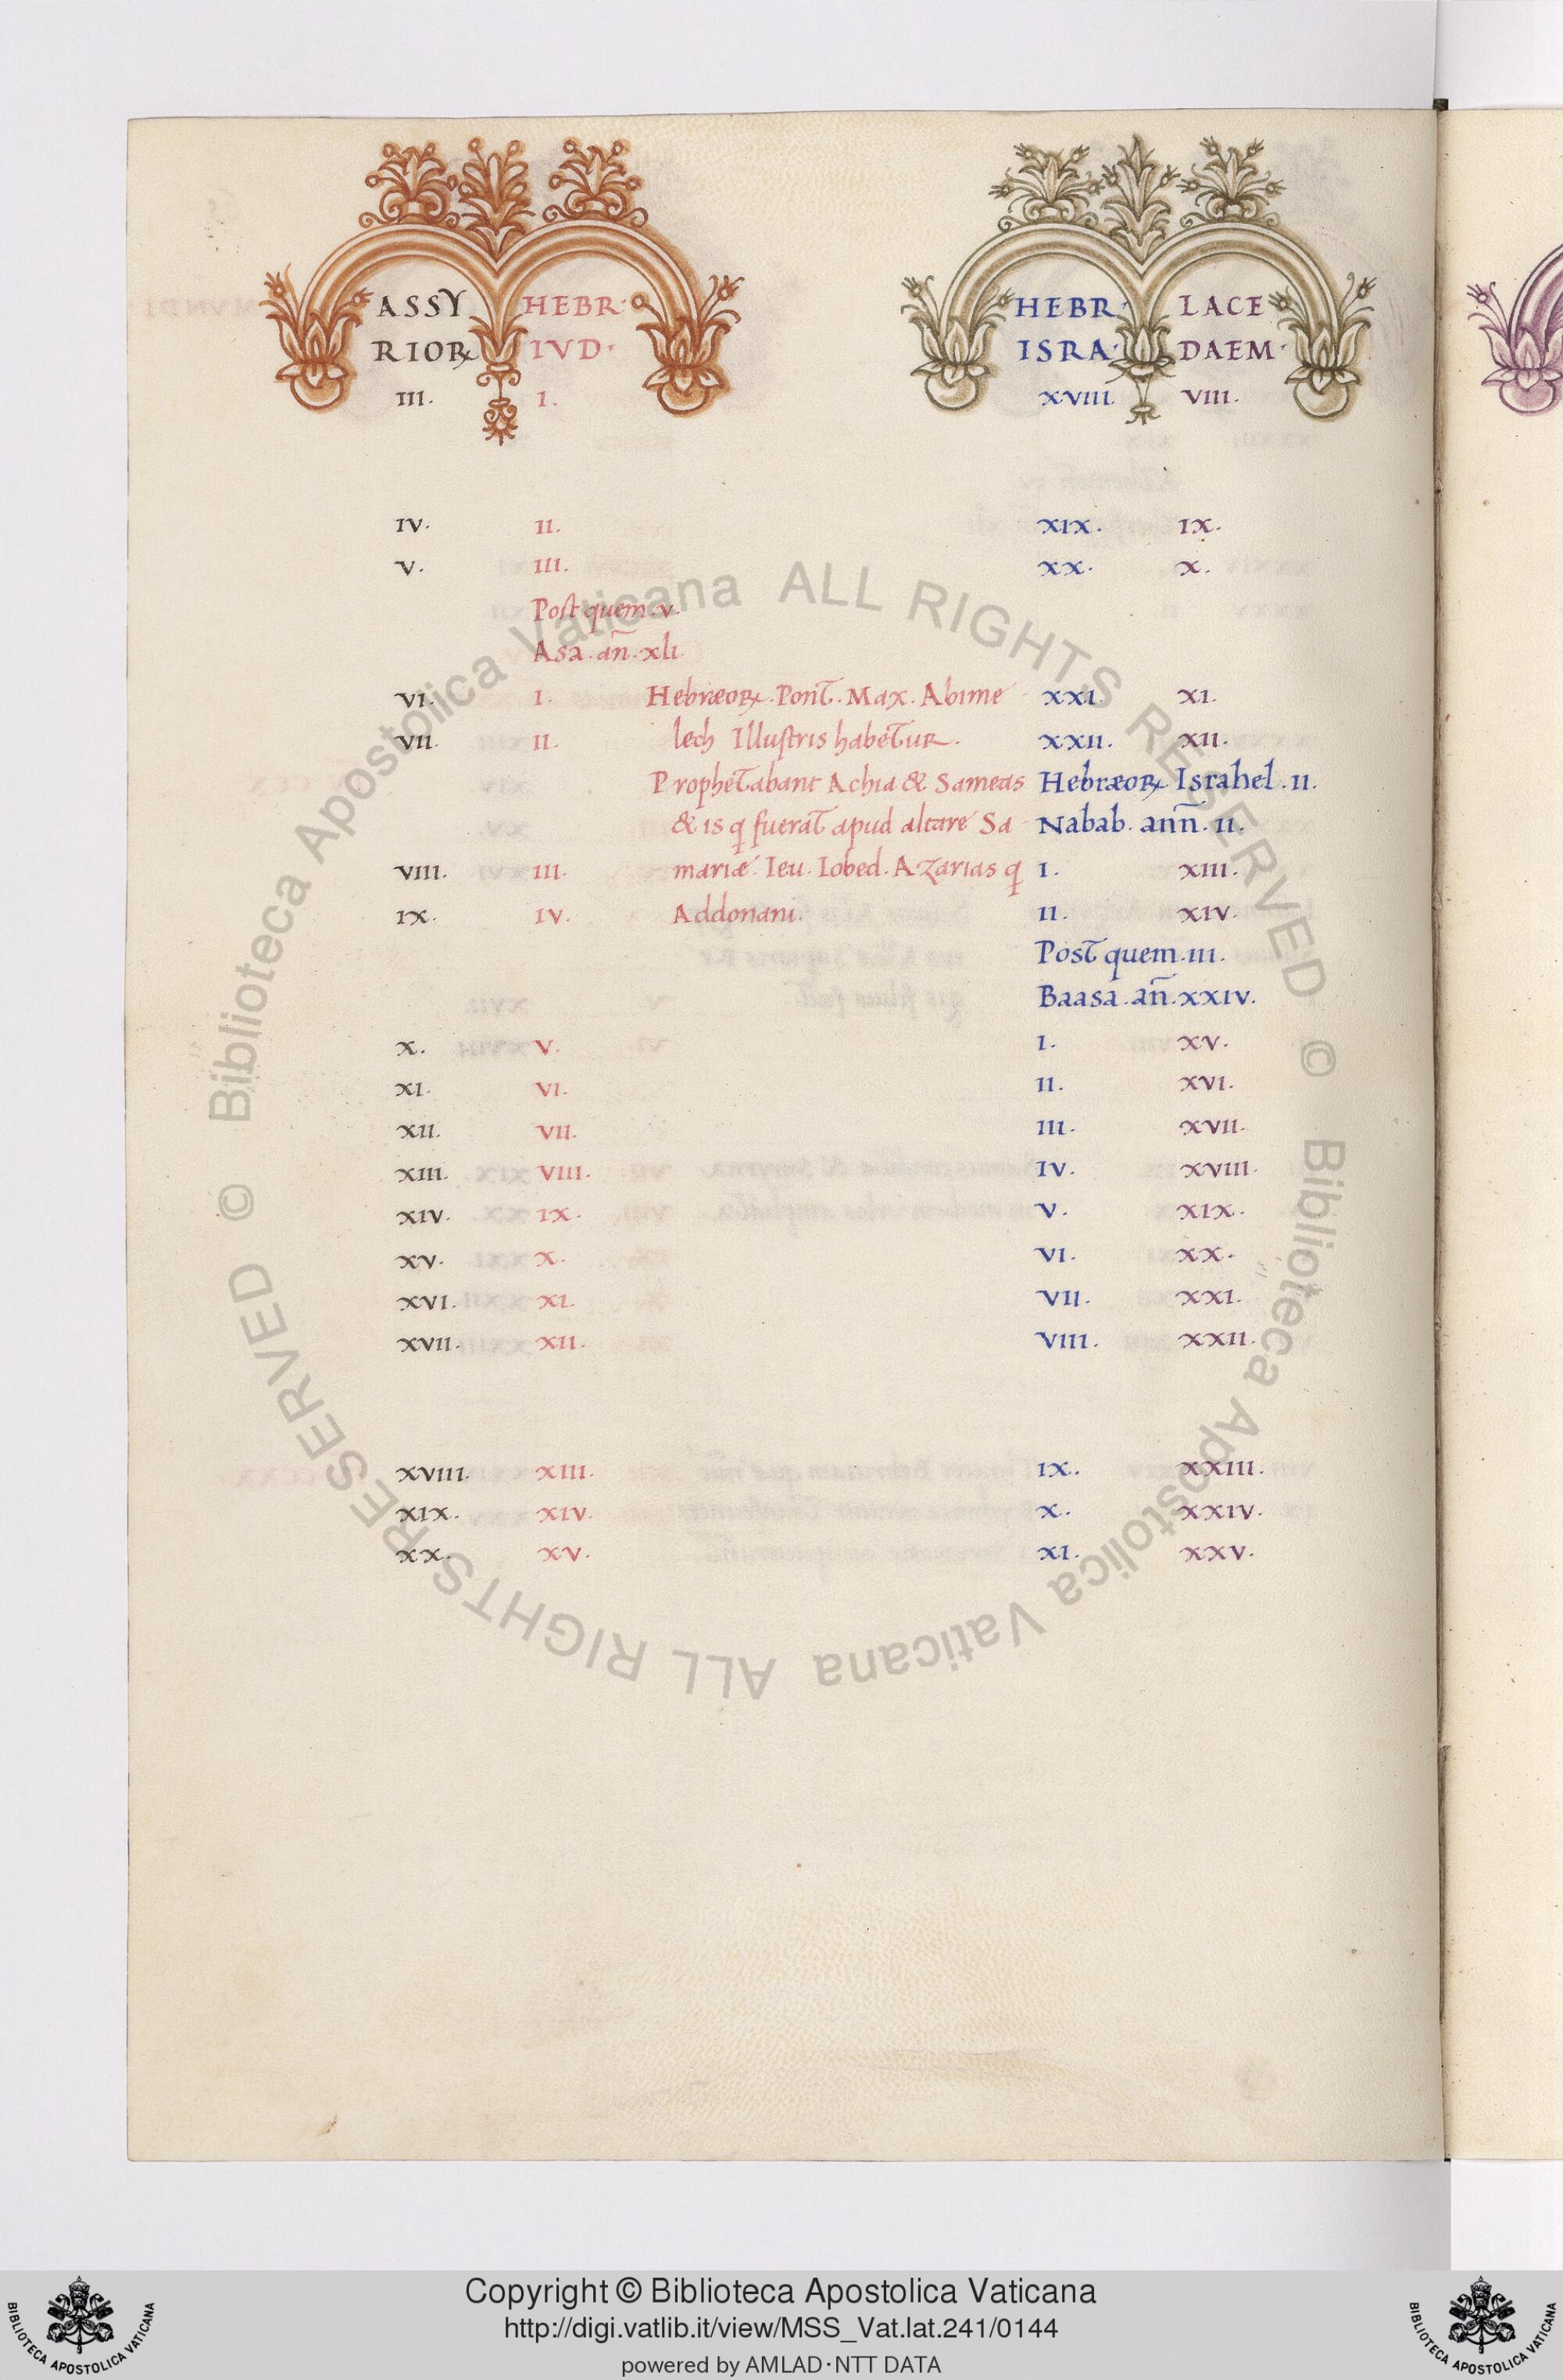 ASSY HEBR· HEBR· LACE
RIOꝜ IVD· ISRA· DAEM·
III. I. XVIII. VIII.
IV. II. XIX. IX.
V. III. XX. X.
Post quem .v.
Asa. añ. xli.
VI. I. HebræoꝜ. Pont. Max. Abime XXI. XI.
VII. II. lech Illustris habetur. XXII. XII.
Prophetabant Achia & Sameas HebræoꝜ Israhel .II.
& is q fuerat apud altare Sa Nabab. anñ. II.
VIII. III. mariæ. Ieu. Iobed. Azarias q I. XIII.
IX. IV. Addonani. II. XIV.
Post quem .III.
Baasa. añ. XXIV.
X. V. I. XV.
XI. VI. II. XVI.
XII. VII. III. XVII.
XIII. VIII. IV. XVIII.
XIV. IX. V. XIX.
XV. X. VI. XX.
XVI. XI. VII. XXI.
XVII. XII. VIII. XXII.
XVIII. XIII. IX. XXIII.
XIX. XIV. X. XXIV.
XX. XV. XI. XXV.
© Biblioteca Apostolica Vaticana ALL RIGHTS RESERVED
© Biblioteca Apostolica Vaticana ALL RIGHTS RESERVED
Copyright © Biblioteca Apostolica Vaticana
http://digi.vatlib.it/view/MSS_Vat.lat.241/0144
powered by AMLAD·NTT DATA
BIBLIOTECA APOSTOLICA VATICANA
BIBLIOTECA APOSTOLICA VATICANA